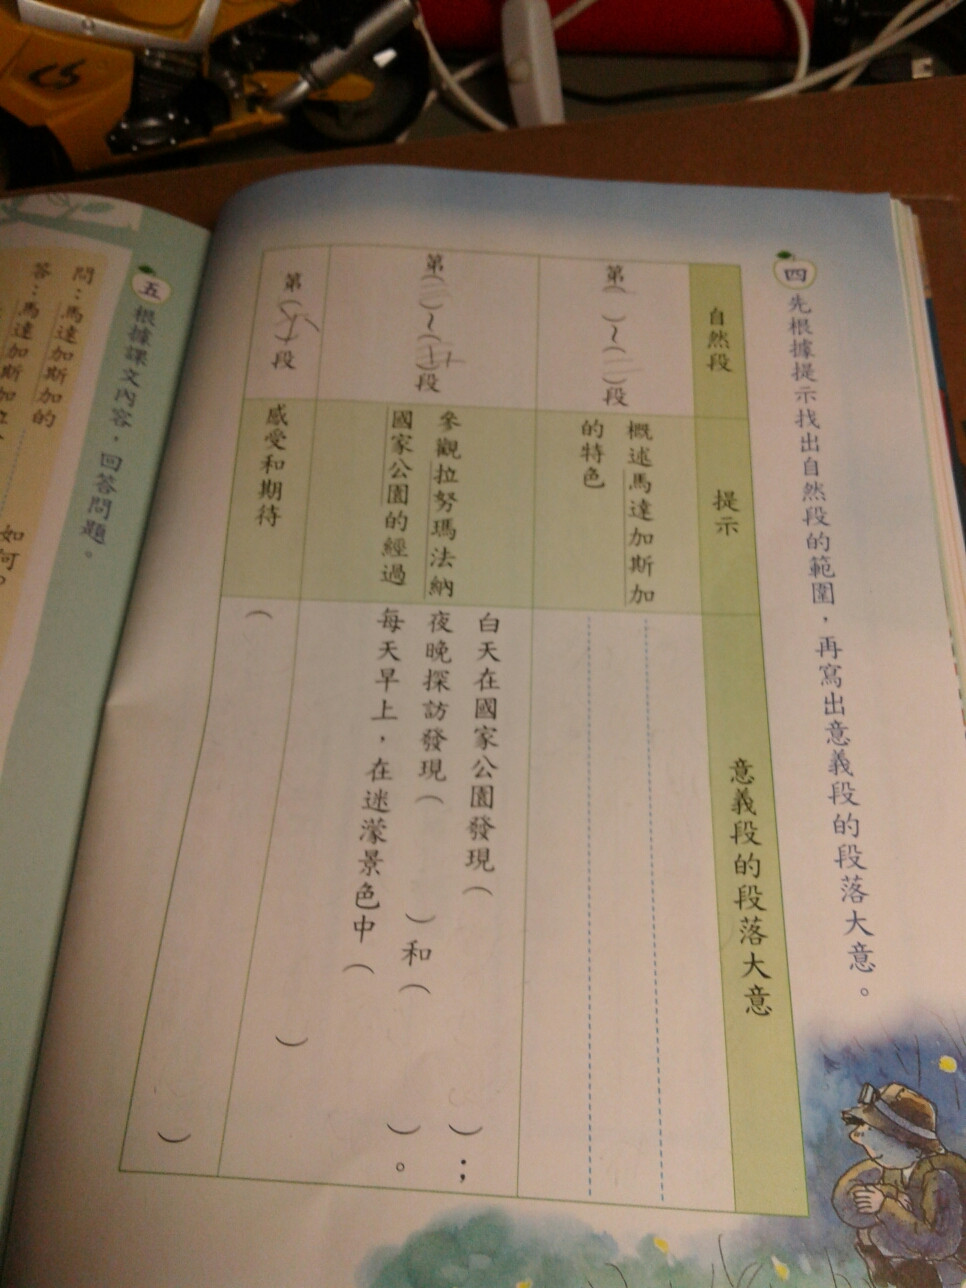 四 先根據提示找出自然段的範圍，再寫出意義段的段落大意。
自然段
提示
意義段的段落大意
第( )~(二)段
概述馬達加斯加
的特色
第(三)~( )段
參觀拉努瑪法納
國家公園的經過
白天在國家公園發現( )；
夜晚探訪發現( )和( )。
每天早上，在迷濛景色中( )
第( )段
感受和期待
( )
五 根據課文內容，回答問題。
問：馬達加斯加的 如何？
答：馬達加斯加